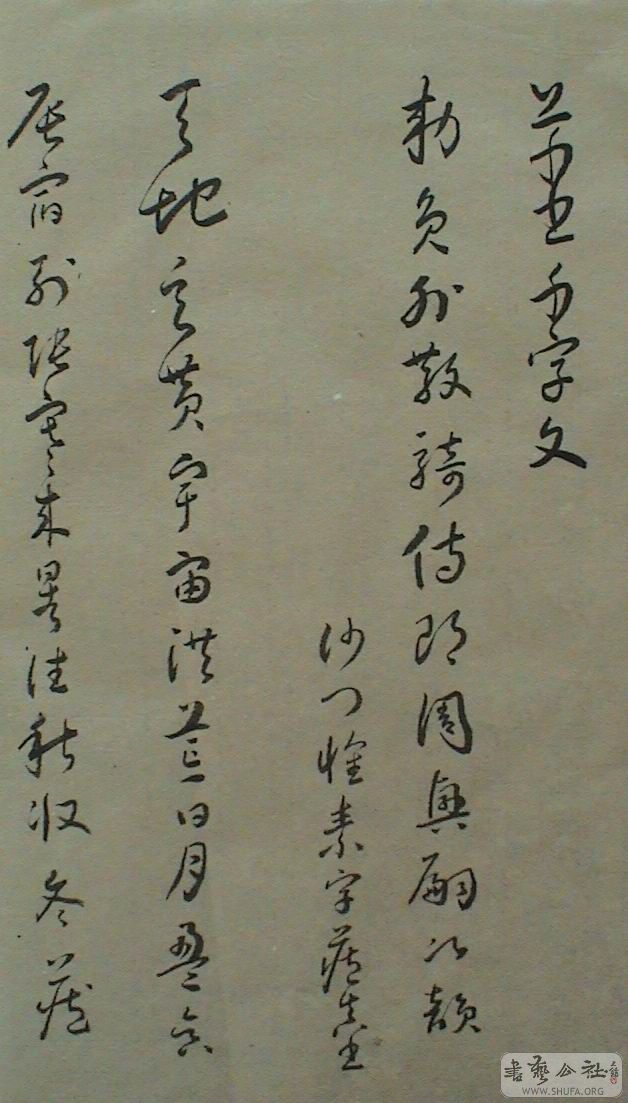 草書千字文
勅員外散騎侍郎周興嗣次韻
沙門懷素字藏真書
天地玄黃宇宙洪荒日月盈昃
辰宿列張寒來暑往秋收冬藏
書藝公社
WWW.SHUFA.ORG